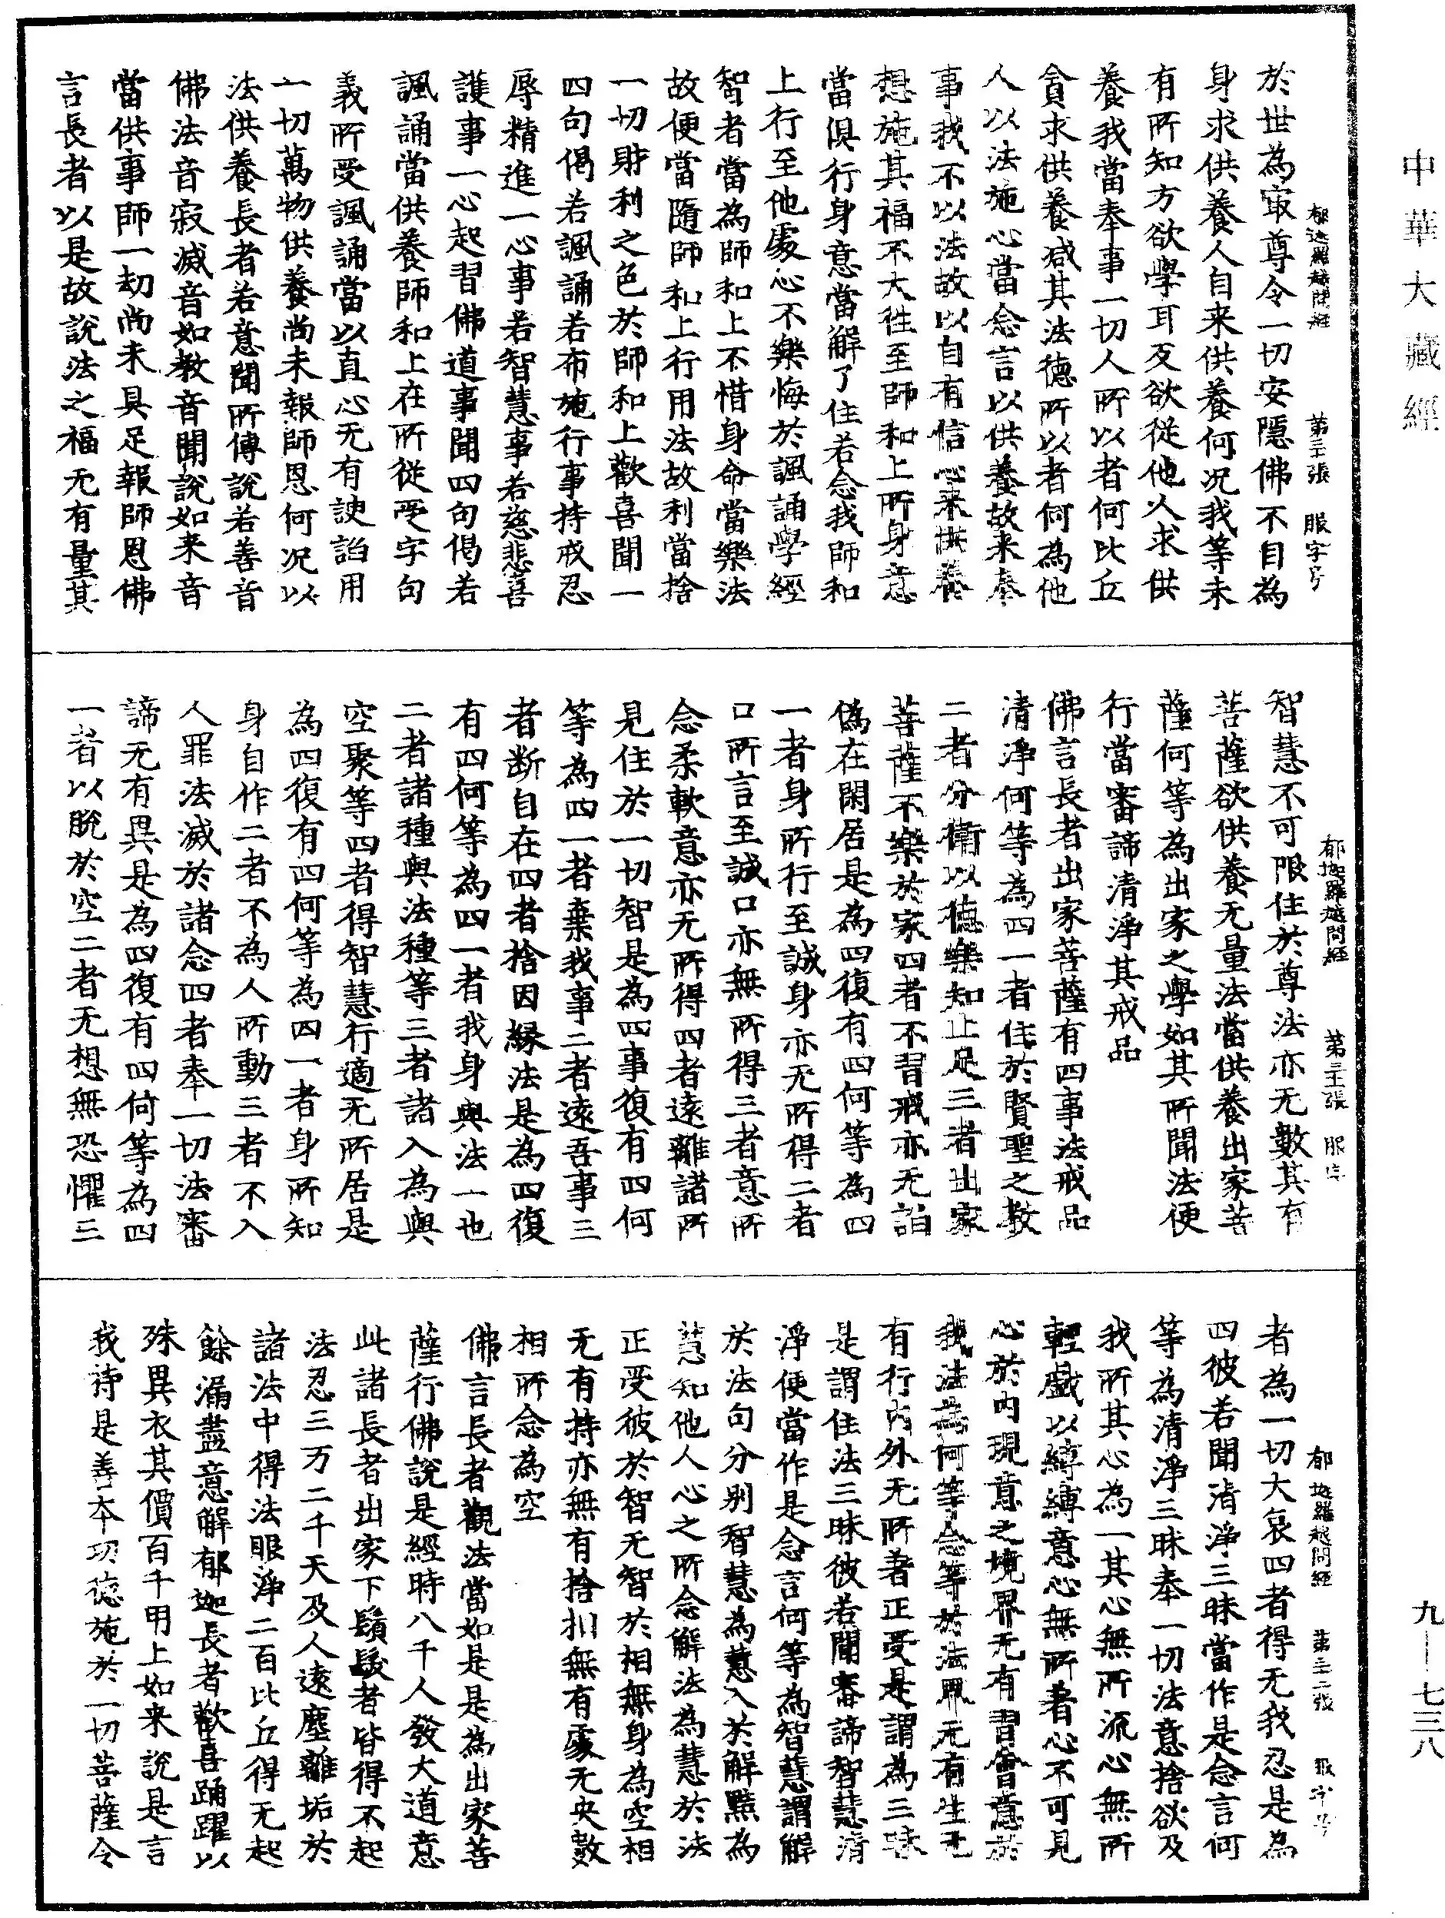 中華大藏經
於世為㝡尊令一切安隱佛不自為
身求供養人自来供養何況我等未
有所知方欲學耳反欲從他人求供
養我當奉事一切人所以者何比丘
貪求供養減其法德所以者何為他
人以法施心當念言以供養故来奉
事我不以法故以自有信心来供養
想施其福不大往至師和上所身意
當俱行身意當解了住若念我師和
上行至他處心不樂悔於諷誦學經
智者當為師和上不惜身命當樂法
故便當隨師和上行用法故利當捨
一切財利之色於師和上歡喜聞一
四句偈若諷誦若布施行事持戒忍
辱精進一心事若智慧事若慈悲喜
護事一心起習佛道事聞四句偈若
諷誦當供養師和上在所從受字句
義所受諷誦當以直心无有諛諂用
一切萬物供養尚未報師恩何況以
法供養長者若意聞所傳說若善音
佛法音寂滅音如教音聞說如来音
當供事師一劫尚未具足報師恩佛
言長者以是故說法之福无有量其
郁迦羅越問經
智慧不可限住於尊法亦无數其有
菩薩欲供養无量法當供養出家菩
薩何等為出家之學如其所聞法便
行當審諦清淨其戒品
佛言長者出家菩薩有四事法戒品
清淨何等為四一者住於賢聖之教
二者分衛以德樂知止足三者出家
菩薩不樂於家四者不習戒亦无諂
偽在閑居是為四復有四何等為四
一者身所行至誠身亦无所得二者
口所言至誠口亦無所得三者意所
念柔軟意亦无所得四者遠離諸所
見住於一切智是為四事復有四何
等為四一者棄我事二者遠吾事三
者断自在四者捨因緣法是為四復
有四何等為四一者我身與法一也
二者諸種與法種等三者諸入為與
空聚等四者得智慧行適无所居是
為四復有四何等為四一者身所知
身自作二者不為人所動三者不入
人罪法滅於諸念四者奉一切法審
諦无有異是為四復有四何等為四
一者以脫於空二者无想無恐懼三
郁迦羅越問經
者為一切大哀四者得无我忍是為
四彼若聞清淨三昧當作是念言何
等為清淨三昧奉一切法意捨欲及
我所其心為一其心無所流心無所
輕戲以縛縛意心無所著心不可見
心於內現意之境界无有習會意於
我法為何等念等於法界无有生无
有行內外无所著正受是謂為三昧
是謂住法三昧彼若聞審諦智慧清
淨便當作是念言何等為智慧謂解
於法句分別智慧為慧入於解黠為
慧知他人心之所念解法為慧於法
正受彼於智无智於相無身為空相
无有持亦無有捨扣無有處无央數
相所念為空
佛言長者觀法當如是是為出家菩
薩行佛說是經時八千人發大道意
此諸長者出家下鬚髮者皆得不起
法忍三万二千天及人遠塵離垢於
諸法中得法眼淨二百比丘得无起
餘漏盡意解郁迦長者歡喜踊躍以
殊異衣其價百千用上如来說是言
我持是善本功德施於一切菩薩令
郁迦羅越問經
九—七三八